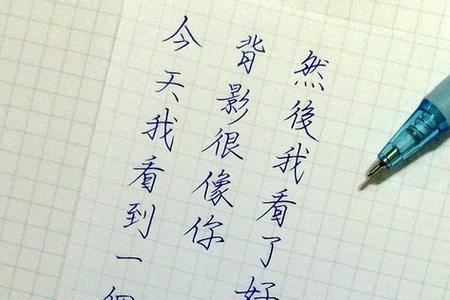 今天我看到一個
背影很像你
然後我看了好